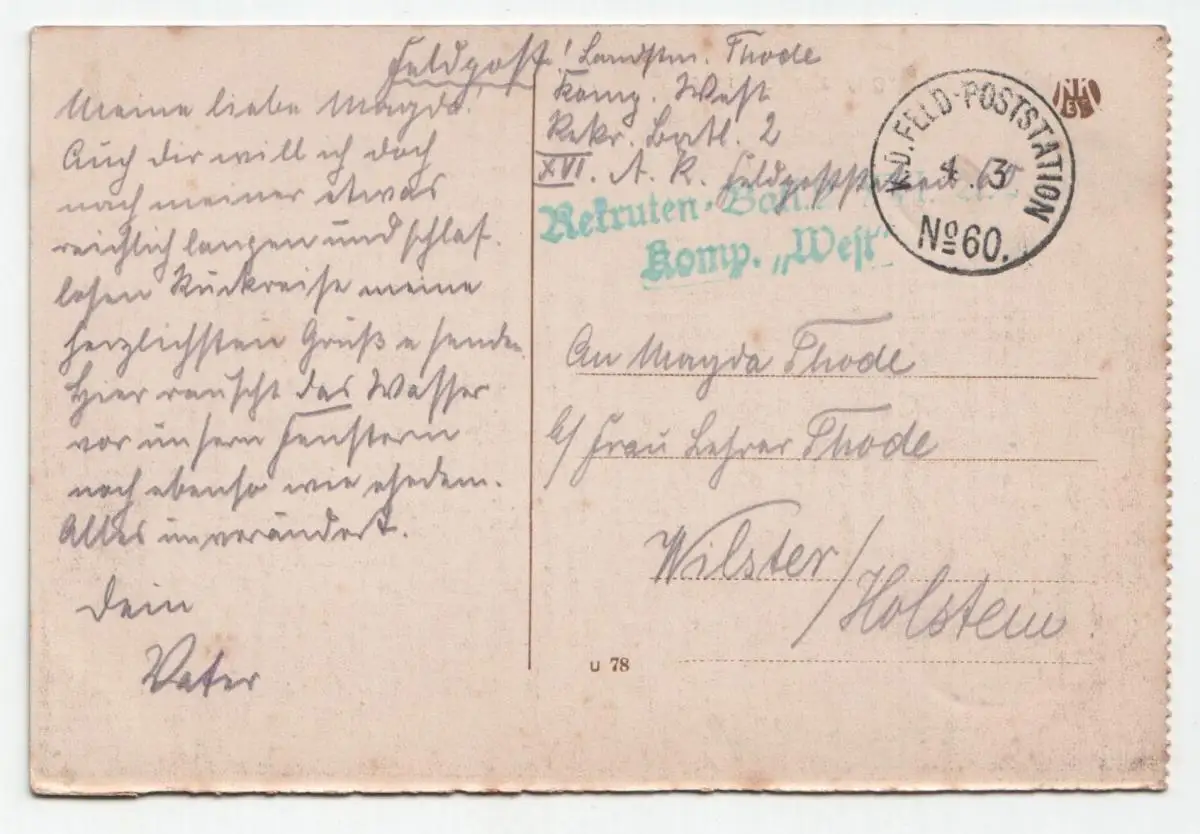 Feldpost! Landstm. Thode
Komp. West
Rekr. Batl. 2
XVI. A. K. Feldpoststation 60
Rekruten-
Komp. „West“
K.D. FELD-POSTSTATION
4. 3
No 60.
NK
Meine liebe Magda!
Auch dir will ich doch
nach meiner etwas
reichlich langen und schlaf-
losen Rückreise meine
herzlichsten Grüße senden.
Hier rauscht das Wasser
vor unsern Fenstern
noch ebenso wie ehedem.
Alles unverändert.
Dein
Vater
An Magda Thode
b/ Frau Lehrer Thode
Wilster/
Holstein
u 78